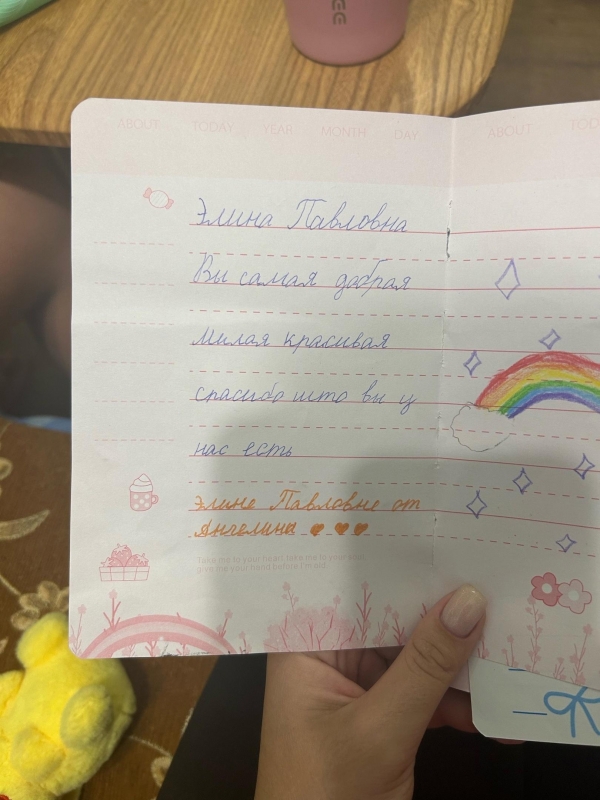 ABOUT TODAY YEAR MONTH DAY
Элина Павловна
Вы самая добрая
милая красивая
спасибо што вы ц
нас есть
Элине Павловне от
Ангелины
Take me to your heart, take me to your soul,
give me your hand before I'm old
ABOUT TOD